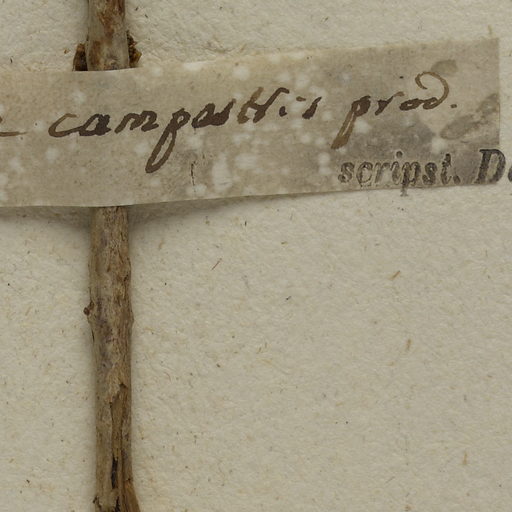 campestris prod.
scripst. D